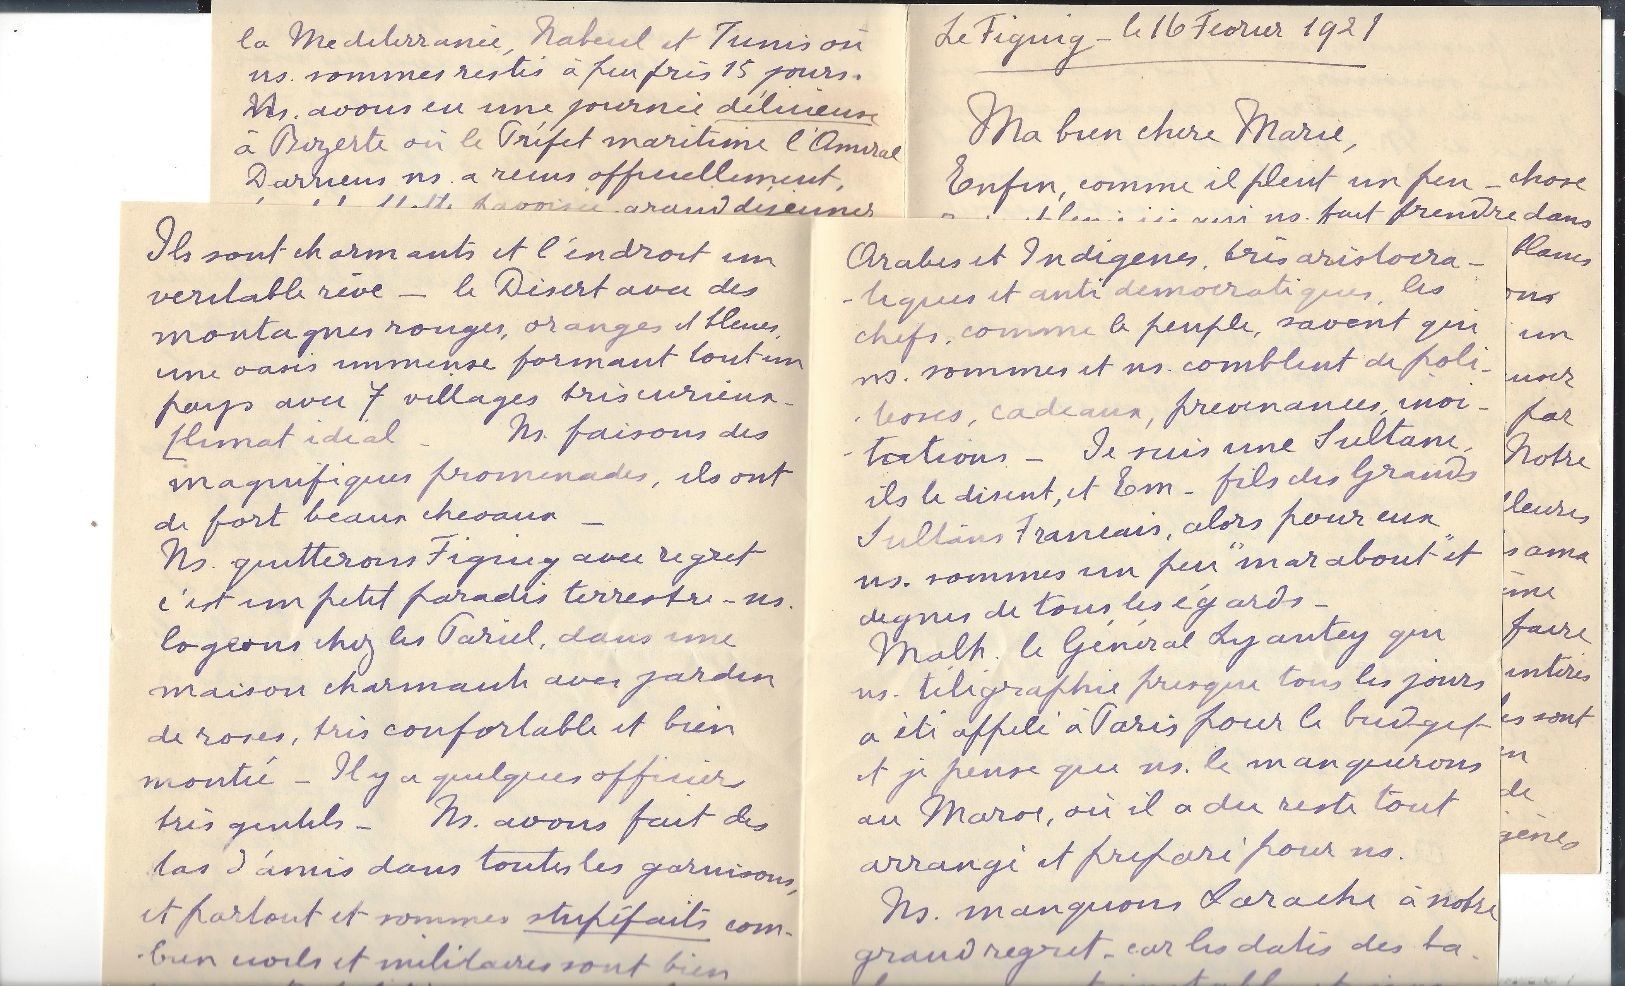 la Mediterranée, Nabeul et Tunis où
ns. sommes restés à peu près 15 jours.
Ns. avons eu une journée délicieuse
à Bizerte où le Préfet maritime l'Amiral
Darrieus ns. a reçus officiellement,
grand dejeuner
Le Figuig - le 16 Fevrier 1921
Ma bien chere Marie,
Enfin, comme il pleut un peu - chose
qui ns. fait prendre dans
blancs
ons
un
user
par
Notre
lleures
s ama
ine
faire
interes
es sont
n
de
gènes
Ils sont charmants et l'endroit un
veritable rêve - le Désert avec des
montagnes rouges, oranges et bleues,
une oasis immense formant tout un
pays avec 7 villages très curieux -
Climat idéal - Ns. faisons des
magnifiques promenades, ils ont
de fort beaux chevaux -
Ns. quitterons Figuig avec regret
c'est un petit paradis terrestre - ns.
logeons chez les Pariel, dans une
maison charmante avec jardin
de roses, très confortable et bien
montée - Il y a quelques officiers
très gentils - Ns. avons fait des
tas d'amis dans toutes les garnisons,
et partout et sommes stupéfaits com-
-bien civils et militaires sont bien
Arabes et Indigenes, très aristocra-
-tiques et anti démocratiques, les
chefs, comme le peuple, savent qui
ns. sommes et ns. comblent de poli-
-tesses, cadeaux, prevenances, invi-
-tations - Je suis une Sultane,
ils le disent, et Em - fils des Grands
Sultans Francais, alors pour eux
ns. sommes un peu "marabout" et
dignes de tous les égards -
Malh. le Général Lyautey qui
ns. télégraphie presque tous les jours
a été appelé à Paris pour le budget
et je pense que ns. le manquerons
au Maroc, où il a du reste tout
arrangé et préparé pour ns.
Ns. manquons Larache à notre
grand regret - car les dates des ba-